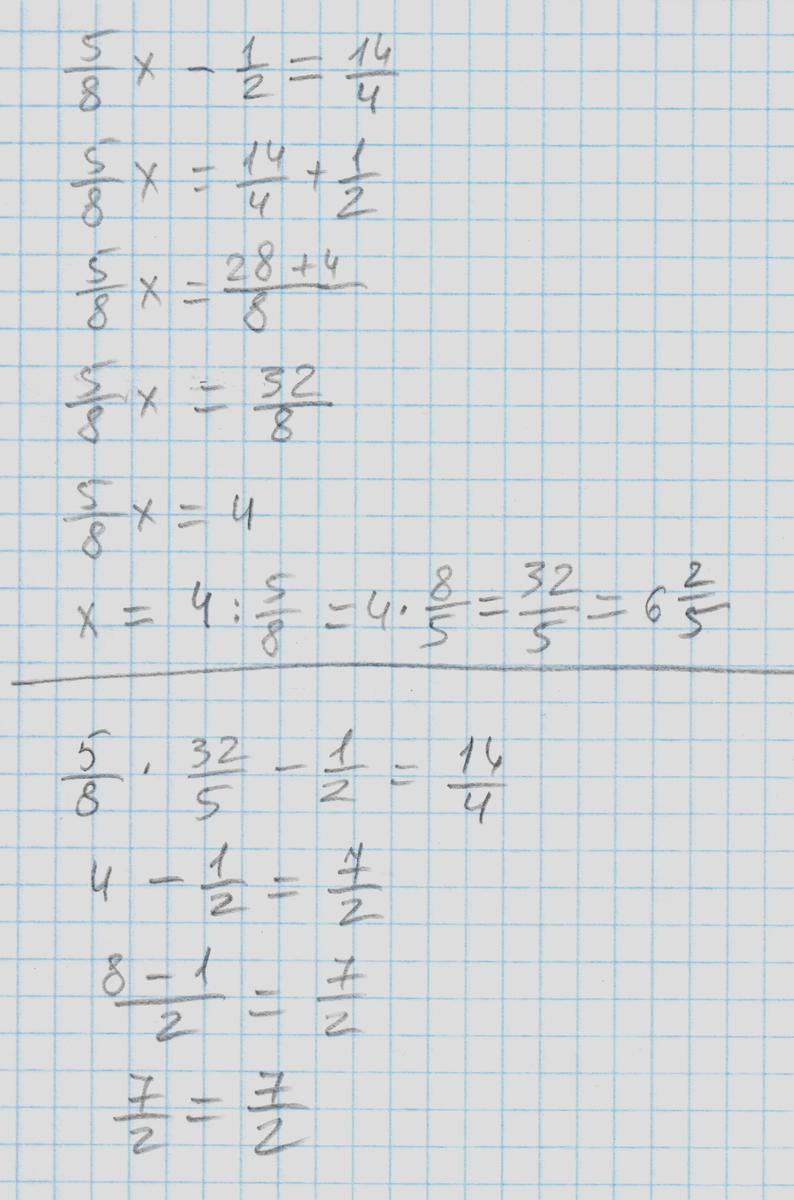 5/8 x - 1/2 = 14/4
5/8 x = 14/4 + 1/2
5/8 x = (28 + 4)/8
5/8 x = 32/8
5/8 x = 4
x = 4 : 5/8 = 4 · 8/5 = 32/5 = 6 2/5
5/8 · 32/5 - 1/2 = 14/4
4 - 1/2 = 7/2
(8 - 1)/2 = 7/2
7/2 = 7/2